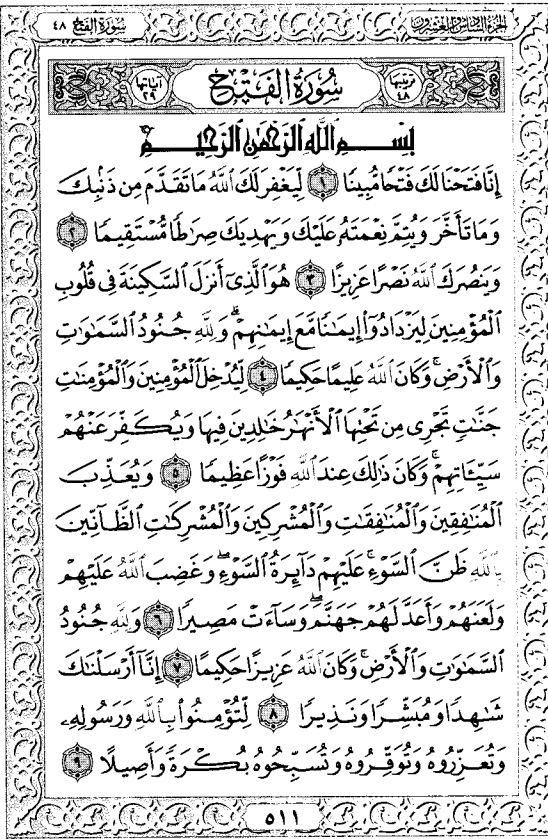 الجزء السادس والعشرون سورة الفتح ٤٨
ترتيبها ٤٨ سُورَةُ الفَتْحِ آياتها ٢٩
بِسْمِ ٱللَّهِ ٱلرَّحْمَٰنِ ٱلرَّحِيمِ
إِنَّا فَتَحْنَا لَكَ فَتْحًا مُّبِينًا ١ لِّيَغْفِرَ لَكَ ٱللَّهُ مَا تَقَدَّمَ مِن ذَنۢبِكَ
وَمَا تَأَخَّرَ وَيُتِمَّ نِعْمَتَهُۥ عَلَيْكَ وَيَهْدِيَكَ صِرَٰطًا مُّسْتَقِيمًا ٢
وَيَنصُرَكَ ٱللَّهُ نَصْرًا عَزِيزًا ٣ هُوَ ٱلَّذِىٓ أَنزَلَ ٱلسَّكِينَةَ فِى قُلُوبِ
ٱلْمُؤْمِنِينَ لِيَزْدَادُوٓا۟ إِيمَٰنًا مَّعَ إِيمَٰنِهِمْ ۗ وَلِلَّهِ جُنُودُ ٱلسَّمَٰوَٰتِ
وَٱلْأَرْضِ ۚ وَكَانَ ٱللَّهُ عَلِيمًا حَكِيمًا ٤ لِّيُدْخِلَ ٱلْمُؤْمِنِينَ وَٱلْمُؤْمِنَٰتِ
جَنَّٰتٍ تَجْرِى مِن تَحْتِهَا ٱلْأَنْهَٰرُ خَٰلِدِينَ فِيهَا وَيُكَفِّرَ عَنْهُمْ
سَيِّـَٔاتِهِمْ ۚ وَكَانَ ذَٰلِكَ عِندَ ٱللَّهِ فَوْزًا عَظِيمًا ٥ وَيُعَذِّبَ
ٱلْمُنَٰفِقِينَ وَٱلْمُنَٰفِقَٰتِ وَٱلْمُشْرِكِينَ وَٱلْمُشْرِكَٰتِ ٱلظَّآنِّينَ
بِٱللَّهِ ظَنَّ ٱلسَّوْءِ ۚ عَلَيْهِمْ دَآئِرَةُ ٱلسَّوْءِ ۖ وَغَضِبَ ٱللَّهُ عَلَيْهِمْ
وَلَعَنَهُمْ وَأَعَدَّ لَهُمْ جَهَنَّمَ ۖ وَسَآءَتْ مَصِيرًا ٦ وَلِلَّهِ جُنُودُ
ٱلسَّمَٰوَٰتِ وَٱلْأَرْضِ ۚ وَكَانَ ٱللَّهُ عَزِيزًا حَكِيمًا ٧ إِنَّآ أَرْسَلْنَٰكَ
شَٰهِدًا وَمُبَشِّرًا وَنَذِيرًا ٨ لِّتُؤْمِنُوا۟ بِٱللَّهِ وَرَسُولِهِۦ
وَتُعَزِّرُوهُ وَتُوَقِّرُوهُ وَتُسَبِّحُوهُ بُكْرَةً وَأَصِيلًا ٩
٥١١